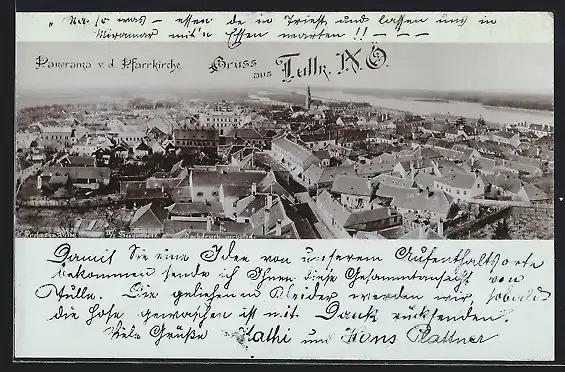 "Na so was — essen de in Triest und lassen uns in
Miramar mit'n Essen warten!!
Panorama v. d. Pfarrkirche.
Gruss aus Tulln, N.Ö.
Damit Sie eine Idee von unserem Aufenthaltsorte
bekommen sende ich Ihnen diese Gesammtansicht von
Tulln. Die geliehenen Kleider werden wir, sobald
die Hose gewaschen ist mit Dank rücksenden.
Viele Grüße Kathi und Hans Plattner